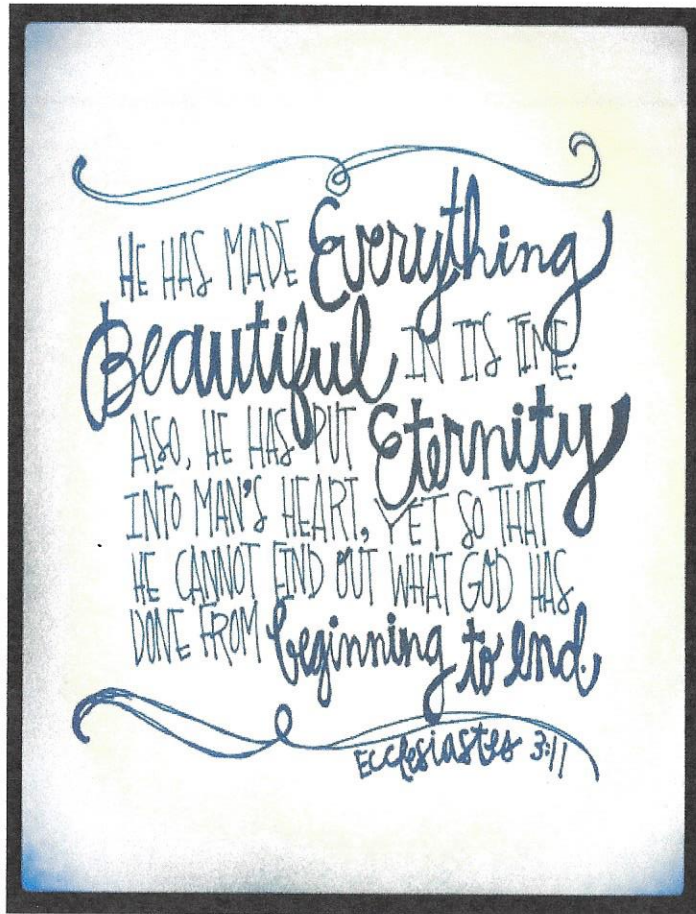 HE HAS MADE Everything
Beautiful IN ITS TIME.
ALSO, HE HAS PUT Eternity
INTO MAN'S HEART, YET SO THAT
HE CANNOT FIND OUT WHAT GOD HAS
DONE FROM beginning to end.
Ecclesiastes 3:11